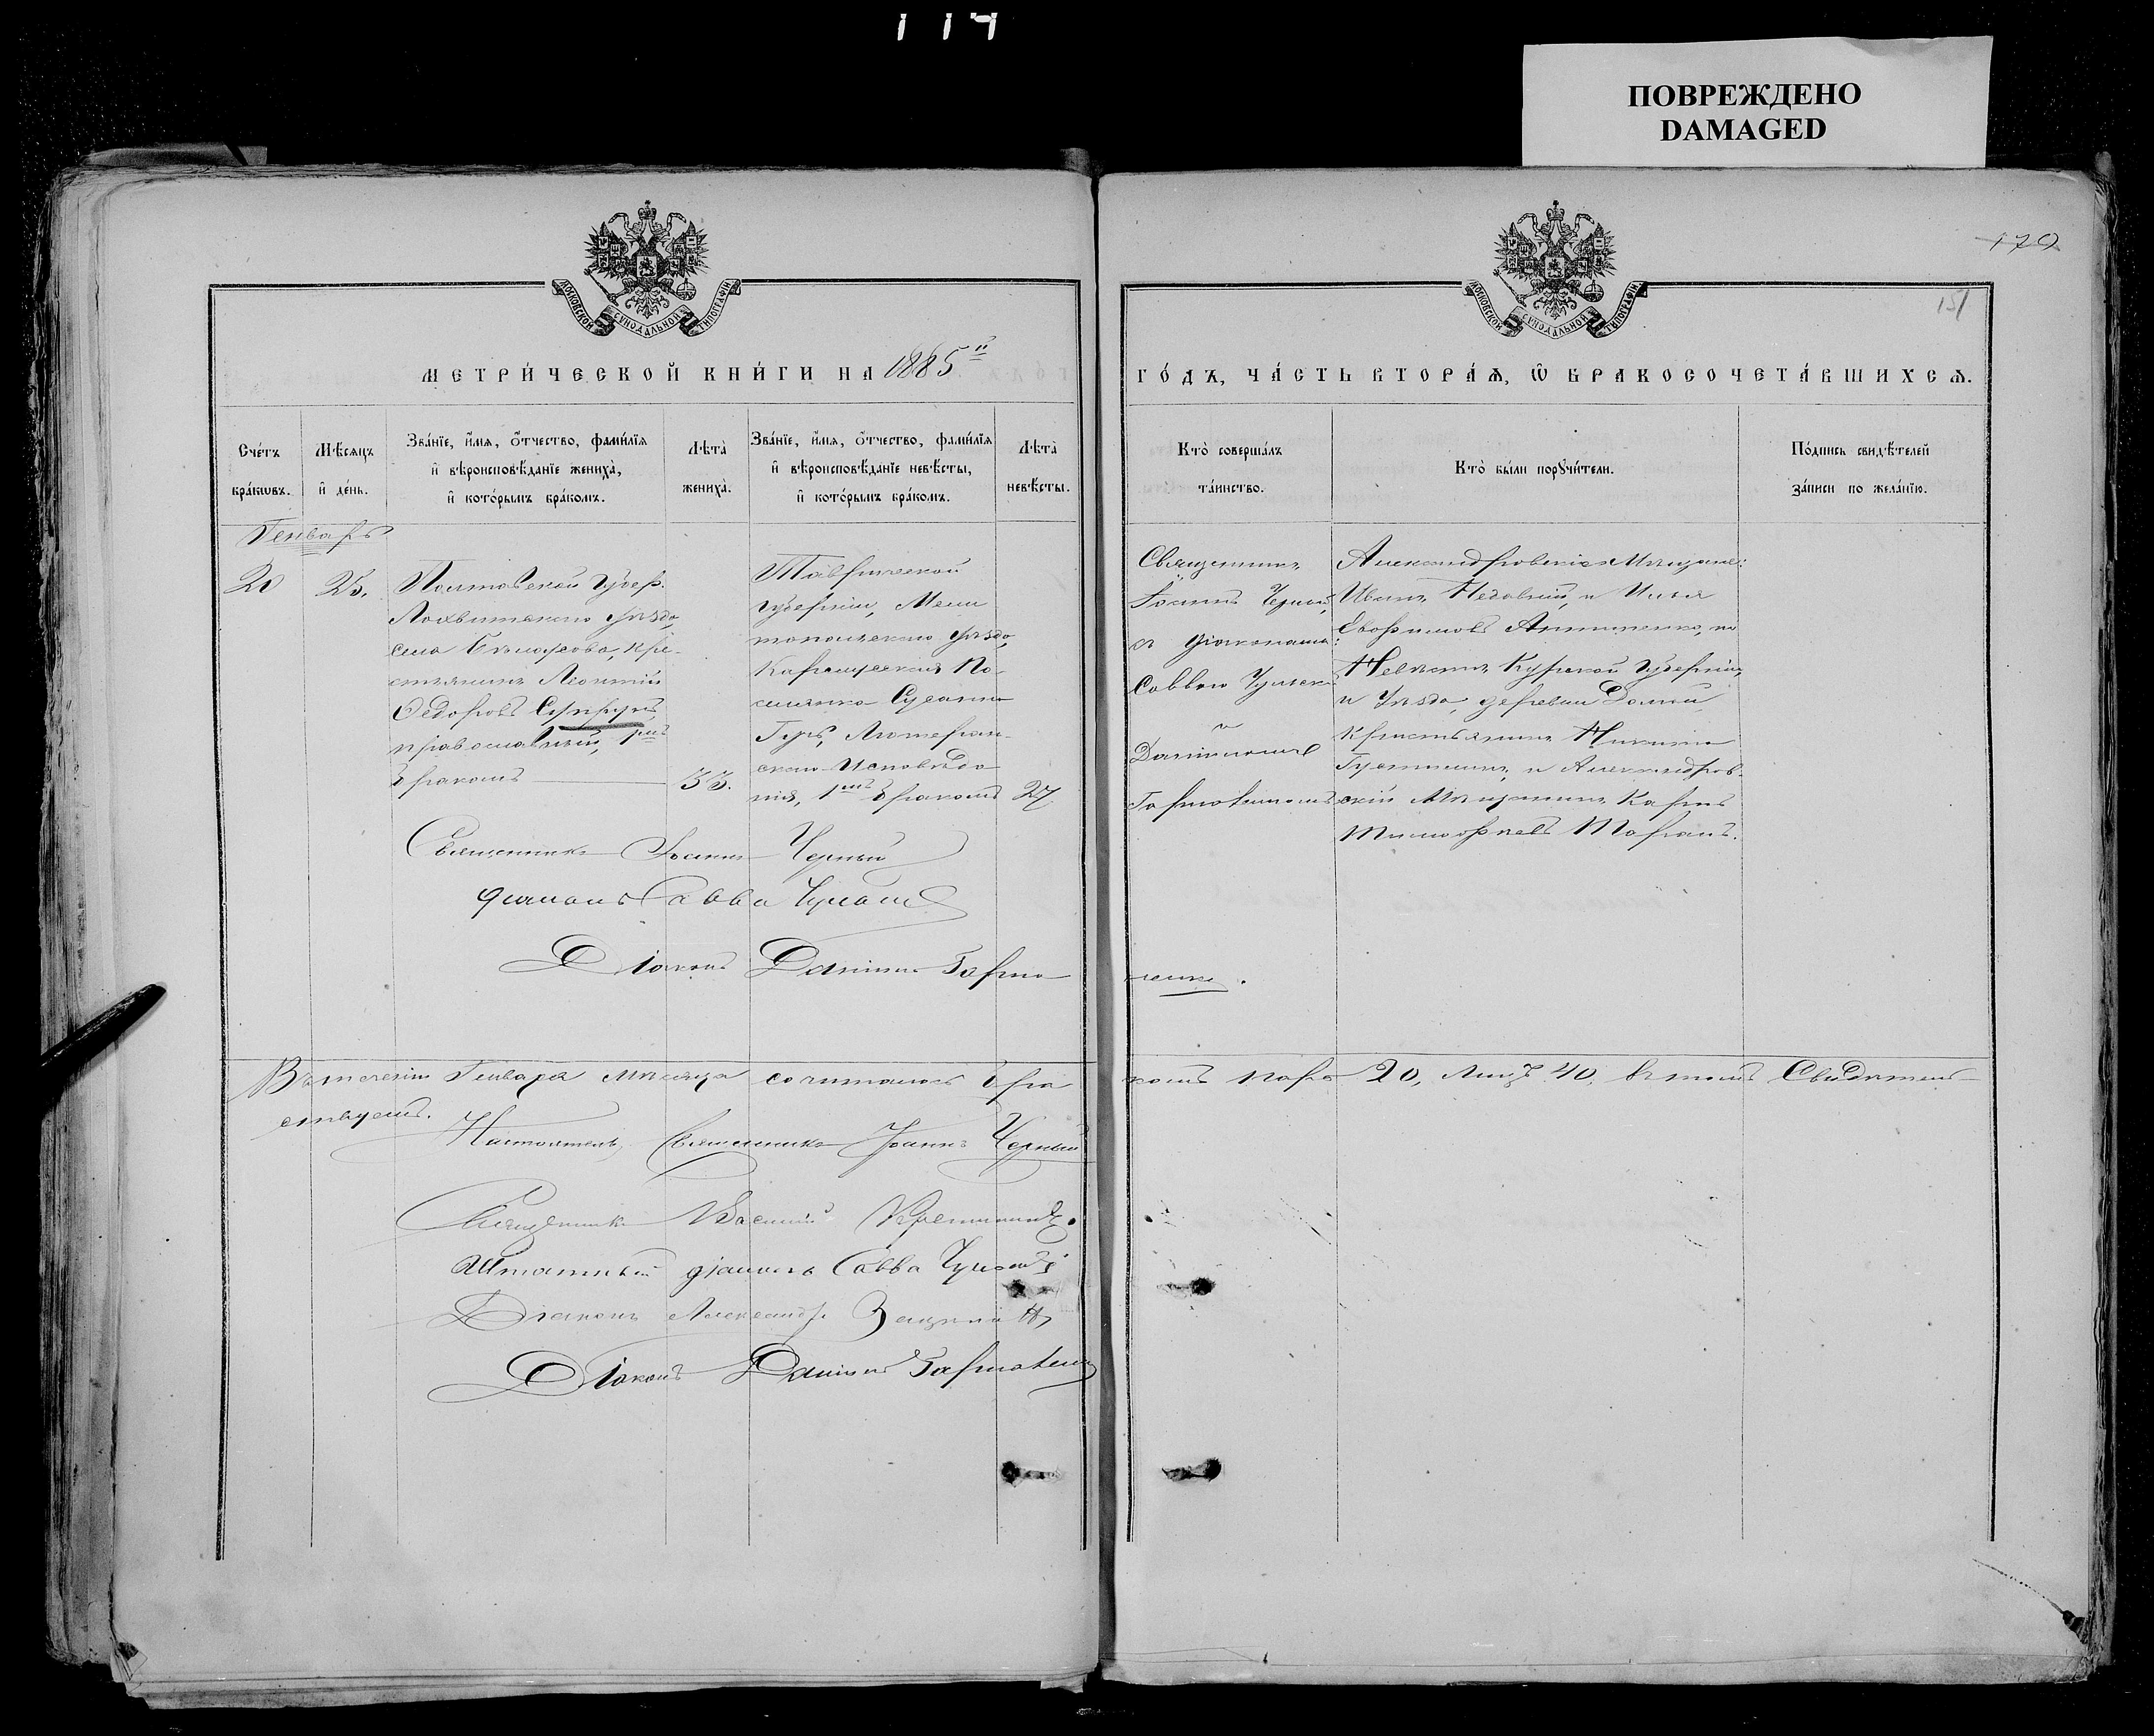 114
ПОВРЕЖДЕНО
DAMAGED
170
151
МОСКОВСКОЙ СѴНОДАЛЬНОЙ ТИПОГРАФІИ
МОСКОВСКОЙ СѴНОДАЛЬНОЙ ТИПОГРАФІИ
МЕТРИ́ЧЕСКОЙ КНИ́ГИ НА 1885й
ГО́ДЪ, ЧА́СТЬ ВТОРА́Ѧ, Ѿ БРАКОСОЧЕТА́ВШИХСѦ.
Сче́тъ
бра́кѡвъ.
Мѣ́сяцъ
и҆ де́нь.
Зва́нїе, и҆́мѧ, ѻ҆́тчество, фами́лїѧ
и҆ вѣроисповѣ́данїе жениха̀,
и҆ кото́рымъ бра́комъ.
Лѣ́та̀
жениха̀.
Зва́нїе, и҆́мѧ, ѻ҆́тчество, фами́лїѧ
и҆ вѣроисповѣ́данїе невѣ́сты,
и҆ кото́рымъ бра́комъ.
Лѣ́та̀
невѣ́сты.
Кто̀ соверша́лъ
та́инство.
Кто̀ бы́ли порꙋчи́тели.
По́дпись свидѣ́телей
за́писи по жела́нїю.
Генварь
20
25.
Полтавской Губер.
Лохвитскаго уѣзда,
села Бѣлоусова, кре-
стьянинъ Леонтій
Ѳедоровъ Супрунъ,
православный, 1мъ
бракомъ
33.
Таврической
губерніи, Мели
топольскаго уѣзда,
По-
селянка Сусанна
Гуръ, Лютеран-
скаго Исповѣда
нія, 1мъ бракомъ
27
Священникъ
Іоаннъ Черный,
съ діаконами:
Саввою
и
Даніиломъ
Александровскіе Мѣщане:
Иванъ и Илья
Евфимовъ Антипенко, по
Невѣстѣ: Курской Губерніи,
и Уѣзда, деревни Долгой
крестьянинъ Никита
и Александров-
скій Мѣщанинъ Карпъ
Тимофѣевъ Таранъ.
Священникъ Іоаннъ Черный
діаконъ Савва
Діаконъ Даніилъ
Въ теченіи Генваря Мѣсяца сочиталось бра
комъ паръ 20, Лицъ 40, въ томъ Свидѣтель-
ствуемъ.
Настоятель, Священникъ Іоаннъ Черный
Священникъ Василій
Штатный діаконъ Савва
Діаконъ Александръ
Діаконъ Даніилъ